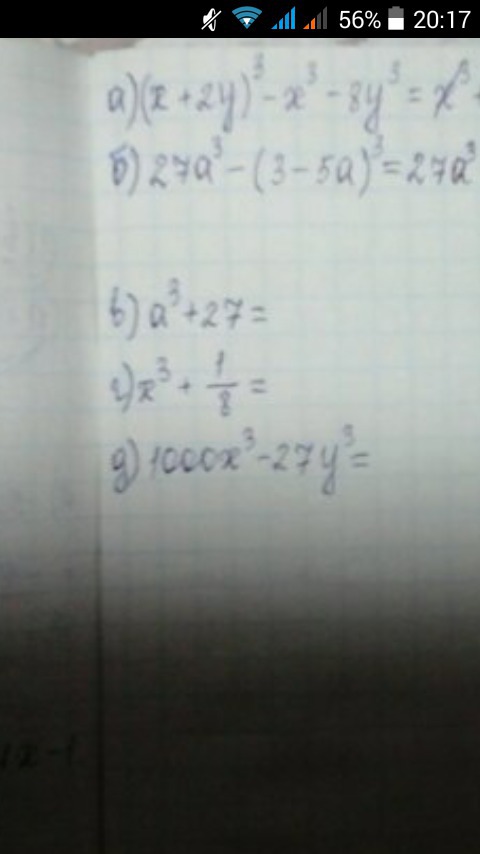 56% 20:17
а) (x + 2y)³ - x³ - 8y³ = x³ +
б) 27a³ - (3 - 5a)³ = 27a³
в) a³ + 27 =
г) x³ + 1/8 =
д) 1000x³ - 27y³ =
x - 1